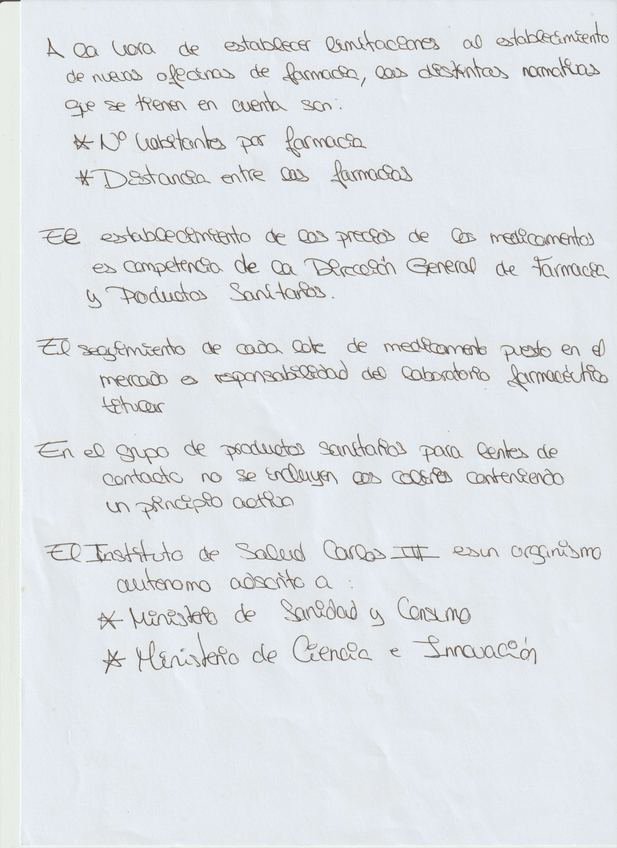 A la hora de establecer limitaciones al establecimiento
de nuevas oficinas de farmacia, las distintas normativas
que se tienen en cuenta son:
* Nº habitantes por farmacia
* Distancia entre las farmacias
El establecimiento de los precios de los medicamentos
es competencia de la Dirección General de Farmacia
y Productos Sanitarios.
El seguimiento de cada lote de medicamento puesto en el
mercado es responsabilidad del laboratorio farmacéutico
titular
En el grupo de productos sanitarios para lentes de
contacto no se incluyen los colirios conteniendo
un principio activo
El Instituto de Salud Carlos III es un organismo
autonomo adscrito a :
* Ministerio de Sanidad y Consumo
* Ministerio de Ciencia e Innovación